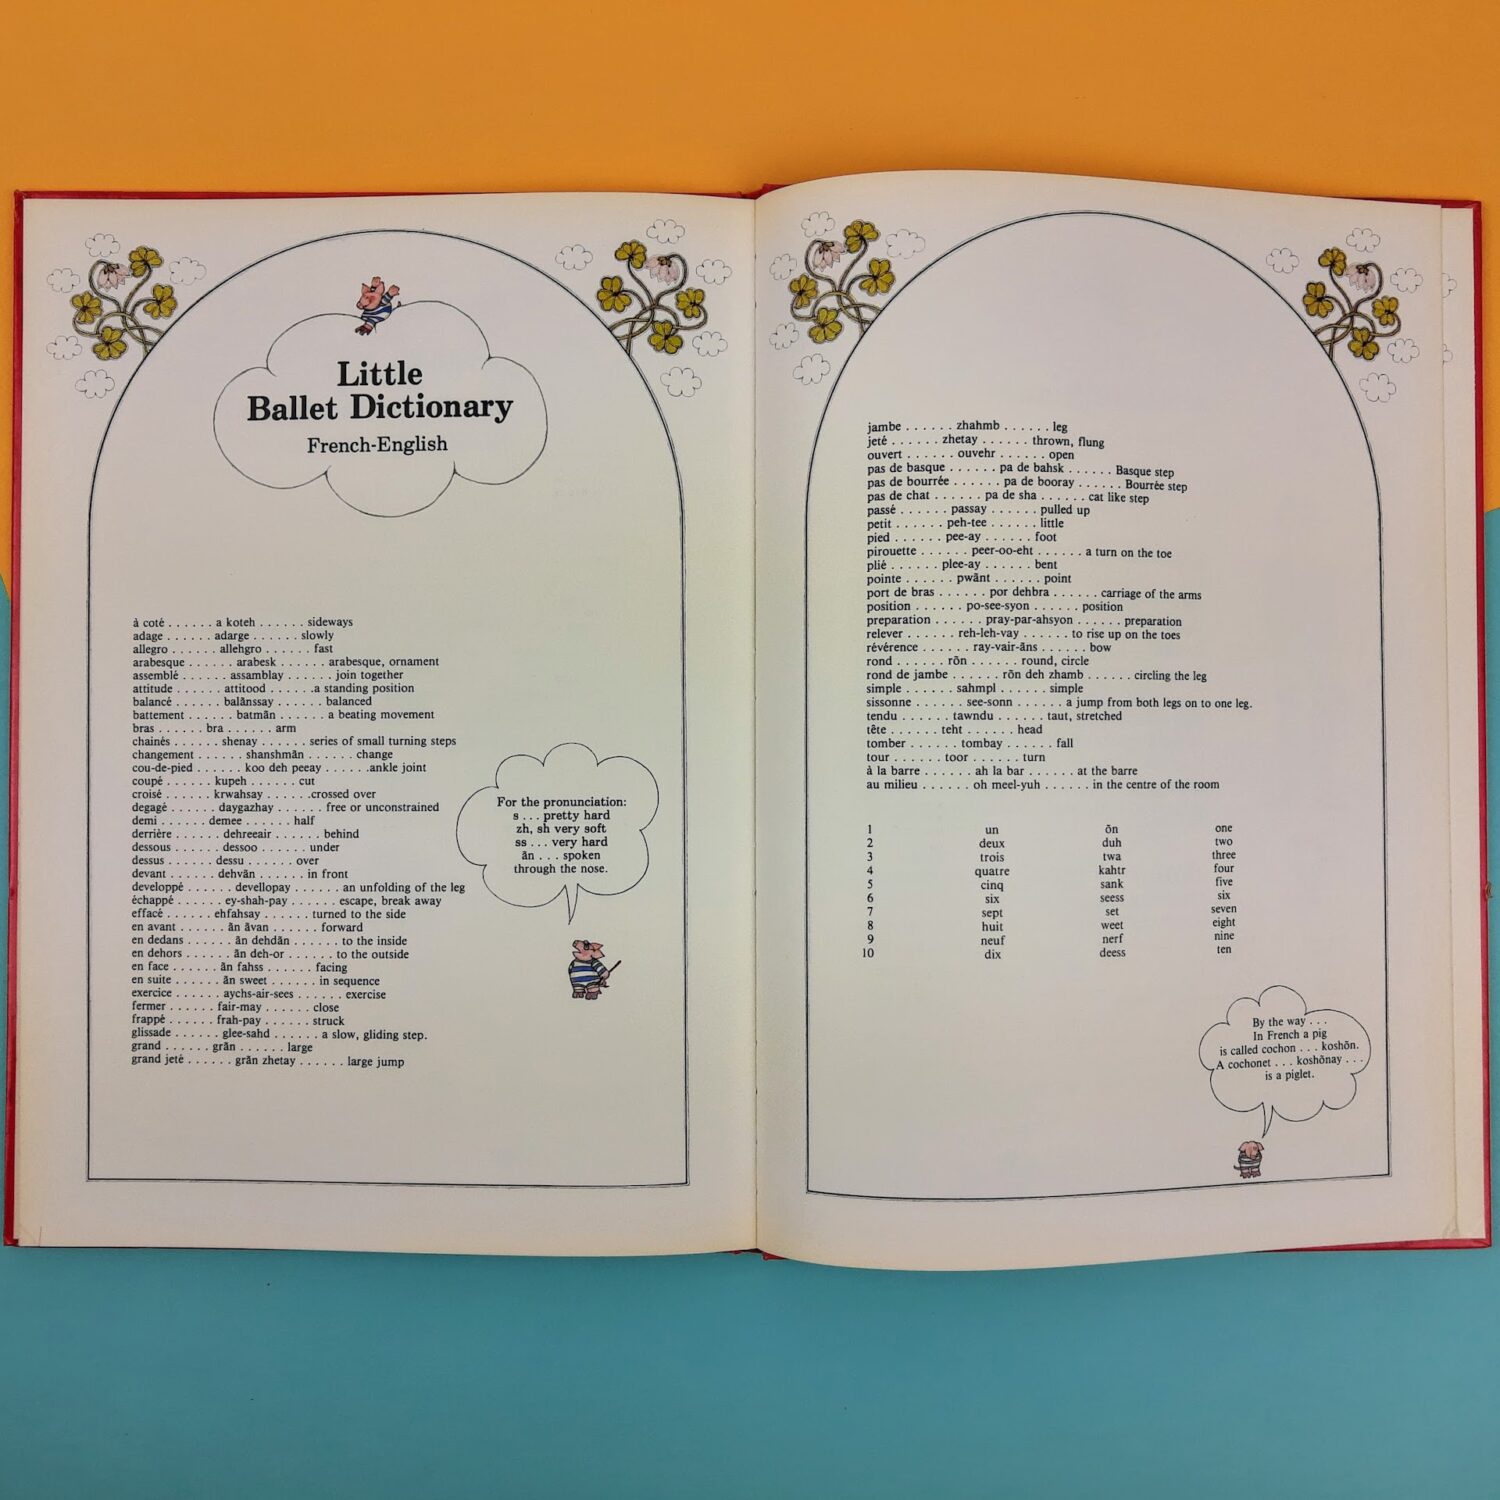 Little
Ballet Dictionary
French-English
à coté . . . . . . a koteh . . . . . . sideways
adage . . . . . . adarge . . . . . . slowly
allegro . . . . . . allehgro . . . . . . fast
arabesque . . . . . . arabesk . . . . . . arabesque, ornament
assemblé . . . . . . assamblay . . . . . . join together
attitude . . . . . . attitood . . . . . .a standing position
balancé . . . . . . balānssay . . . . . . balanced
battement . . . . . . batmān . . . . . . a beating movement
bras . . . . . . bra . . . . . . arm
chainés . . . . . . shenay . . . . . . series of small turning steps
changement . . . . . . shanshmān . . . . . . change
cou-de-pied . . . . . . koo deh peeay . . . . . .ankle joint
coupé . . . . . . kupeh . . . . . . cut
croisé . . . . . . krwahsay . . . . . .crossed over
degagé . . . . . . daygazhay . . . . . . free or unconstrained
demi . . . . . . demee . . . . . . half
derrière . . . . . . dehreeair . . . . . . behind
dessous . . . . . . dessoo . . . . . . under
dessus . . . . . . dessu . . . . . . over
devant . . . . . . dehvān . . . . . . in front
developpé . . . . . . devellopay . . . . . . an unfolding of the leg
échappé . . . . . . ey-shah-pay . . . . . . escape, break away
effacé . . . . . . ehfahsay . . . . . . turned to the side
en avant . . . . . . ān āvan . . . . . . forward
en dedans . . . . . . ān dehdān . . . . . . to the inside
en dehors . . . . . . ān deh-or . . . . . . to the outside
en face . . . . . . ān fahss . . . . . . facing
en suite . . . . . . ān sweet . . . . . . in sequence
exercice . . . . . . aychs-air-sees . . . . . . exercise
fermer . . . . . . fair-may . . . . . . close
frappé . . . . . . frah-pay . . . . . . struck
glissade . . . . . . glee-sahd . . . . . . a slow, gliding step.
grand . . . . . . grān . . . . . . large
grand jeté . . . . . . grān zhetay . . . . . . large jump
For the pronunciation:
s . . . pretty hard
zh, sh very soft
ss . . . very hard
ān . . . spoken
through the nose.
jambe . . . . . . zhahmb . . . . . . leg
jeté . . . . . . zhetay . . . . . . thrown, flung
ouvert . . . . . . ouvehr . . . . . . open
pas de basque . . . . . . pa de bahsk . . . . . . Basque step
pas de bourrée . . . . . . pa de booray . . . . . . Bourrée step
pas de chat . . . . . . pa de sha . . . . . . cat like step
passé . . . . . . passay . . . . . . pulled up
petit . . . . . . peh-tee . . . . . . little
pied . . . . . . pee-ay . . . . . . foot
pirouette . . . . . . peer-oo-eht . . . . . . a turn on the toe
plié . . . . . . plee-ay . . . . . . bent
pointe . . . . . . pwānt . . . . . . point
port de bras . . . . . . por dehbra . . . . . . carriage of the arms
position . . . . . . po-see-syon . . . . . . position
preparation . . . . . . pray-par-ahsyon . . . . . . preparation
relever . . . . . . reh-leh-vay . . . . . . to rise up on the toes
révérence . . . . . . ray-vair-āns . . . . . . bow
rond . . . . . . rōn . . . . . . round, circle
rond de jambe . . . . . . rōn deh zhamb . . . . . . circling the leg
simple . . . . . . sahmpl . . . . . . simple
sissonne . . . . . . see-sonn . . . . . . a jump from both legs on to one leg.
tendu . . . . . . tawndu . . . . . . taut, stretched
tête . . . . . . teht . . . . . . head
tomber . . . . . . tombay . . . . . . fall
tour . . . . . . toor . . . . . . turn
à la barre . . . . . . ah la bar . . . . . . at the barre
au milieu . . . . . . oh meel-yuh . . . . . . in the centre of the room
1 un ōn one
2 deux duh two
3 trois twa three
4 quatre kahtr four
5 cinq sank five
6 six seess six
7 sept set seven
8 huit weet eight
9 neuf nerf nine
10 dix deess ten
By the way . . .
In French a pig
is called cochon . . . koshōn.
A cochonet . . . koshōnay . . .
is a piglet.